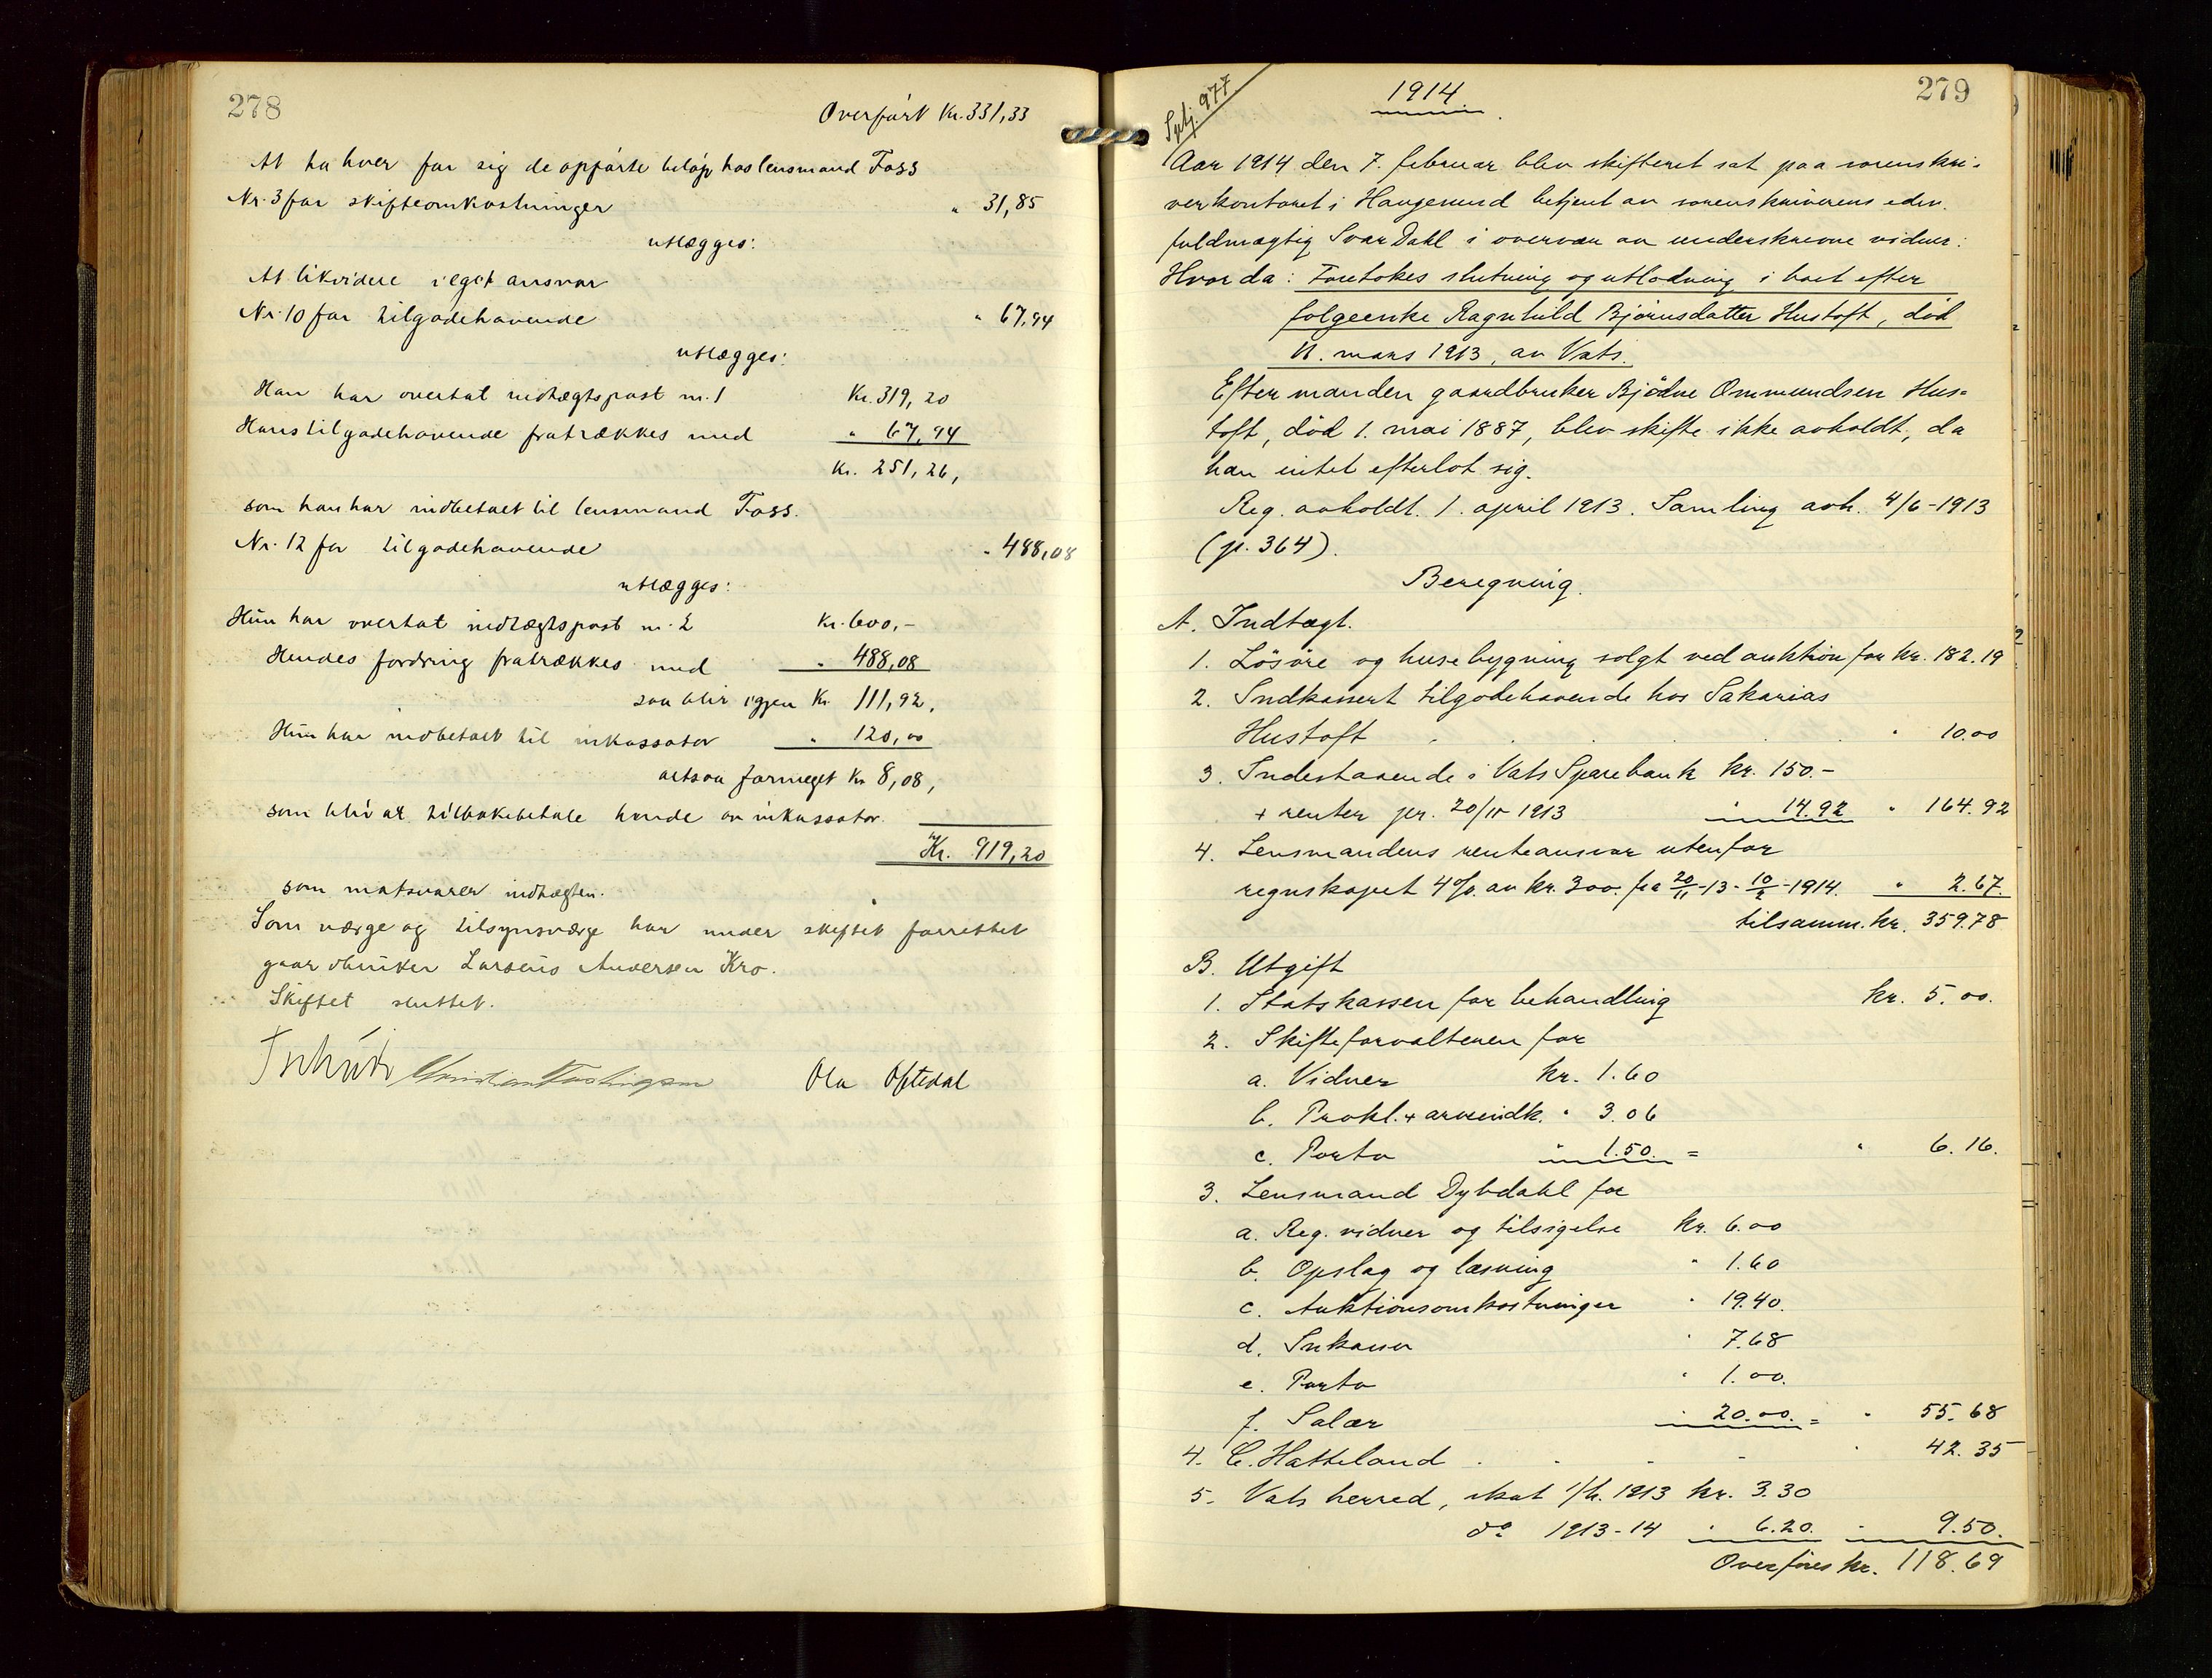 278
Overført Kr. 331,33
At ha hver for sig de opførte beløp hos lensmand Foss
Nr. 3 for skifteomkostninger " 31,85
utlægges:
At likvidere i eget ansvar
Nr. 10 for tilgodehavende " 67,94
utlægges:
Han har overtat indtægtspost nr. 1 Kr. 319,20
Hans tilgodehavende fratrækkes med " 67,94
Kr. 251,26,
som han har indbetalt til lensmand Foss.
Nr. 12 for tilgodehavende " 488,08
utlægges:
Hun har overtat indtægtspost nr. 2 Kr. 600,-
Hendes fordring fratrækkes med " 488,08
saa blir igjen Kr 111,92,
Hun har indbetalt til inkassator " 120,00
altsaa formeget Kr 8,08,
som blir at tilbakebetale hende av inkassator.
Kr. 919,20
som motsvarer indtægten.
Som værge og tilsynsværge har under skiftet forrettet
gaardbruker Larsens Andersen Kro.
Skiftet sluttet.
Ola Oftedal
279
1914.
Spkj. 977
Aar 1914 den 7. februar blev skifteret sat paa sorenskri-
verkontoret i Haugesund betjent av sorenskriverens edsv.
fuldmægtig Ivar Dahl i overvær av underskrevne vidner:
Hvor da: Foretokes slutning og utlodning i boet efter
følgeenke Ragnhild Bjørnsdatter Hustoft, død
11. mars 1913, av Vats.
Efter manden gaardbruker Bjødne Ommundsen Hus-
toft, død 1. mai 1887, blev skifte ikke avholdt, da
han intet efterlot sig.
Reg. avholdt. 1. april 1913. Samling avh. 4/6-1913
(p. 364).
Beregning.
A. Indtægt.
1. Løsøre og husebygning solgt ved auktion for kr. 182.19
2. Indkassert tilgodehavende hos Sakarias
Hustoft " 10.00
3. Indestaaende i Vats Sparebank kr. 150.-
+ renter pr. 20/11 1913 " 14.92 " 164.92
4. Lensmandens renteansvar utenfor
regnskapet 4% av kr. 300. fra 20/11-13 - 10/2-1914. " 2.67.
tilsamm. kr. 359.78
B. Utgift
1. Statskassen for behandling kr. 5.00.
2. Skifteforvalteren for
a. Vidner kr. 1.60
b. Prokl. + arveindk. " 3.06
c. Porto " 1.50. = " 6.16.
3. Lensmand Dybdahl for
a. Reg. vidner og tilsigelse kr. 6.00
b. Opslag og læsning " 1.60
c. Auktionsomkostninger " 19.40.
d. Inkasso " 7.68
e. Porto " 1.00.
f. Salær " 20.00. = " 55.68
4. C. Hatteland " 42.35
5. Vats herred, skat 1/h. 1913 kr. 3.30
do 1913-14 " 6.20. " 9.50.
Overføres kr. 118.69